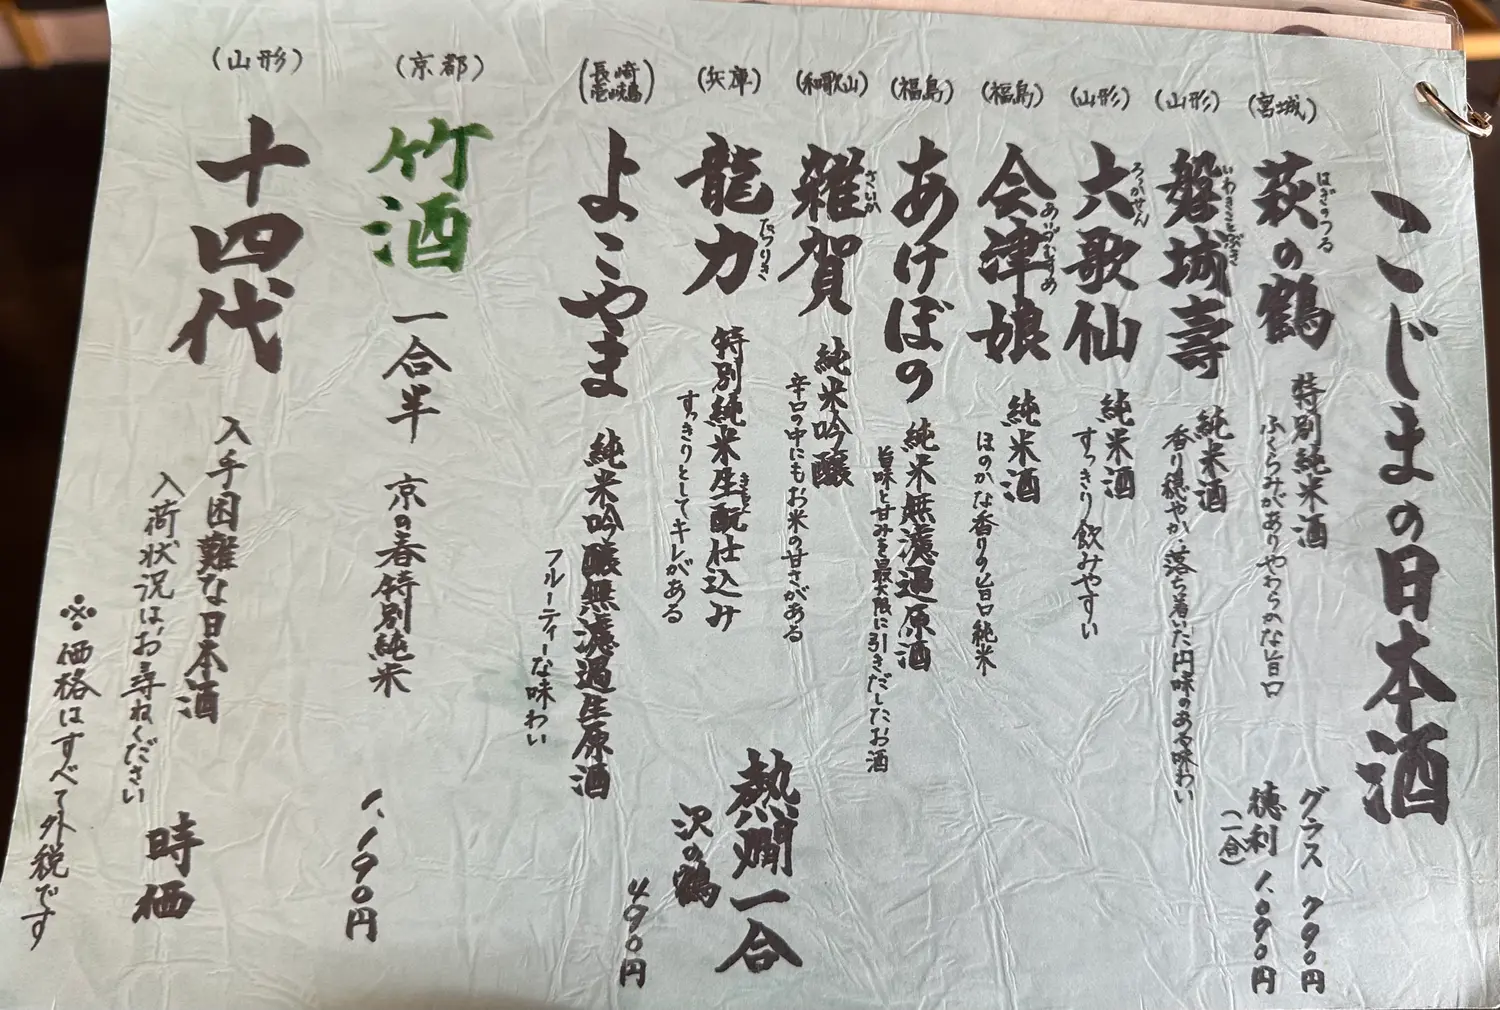 こじまの日本酒
グラス 790円
徳利 1.090円
(二合)
(宮城)
萩の鶴
はぎのつる
特別純米酒
ふくらみがありやわらかな旨口
(山形)
磐城壽
いわきことぶき
純米酒
香り穏やか、落ち着いた円味のある味わい
(山形)
六歌仙
ろっかせん
純米酒
すっきり飲みやすい
(福島)
会津娘
あいづむすめ
純米酒
ほのかな香りの旨口純米
(福島)
あけぼの
純米無濾過原酒
旨味と甘みを最大限に引きだしたお酒
(和歌山)
雑賀
さいか
純米吟醸
辛口の中にもお米の甘さがある
(兵庫)
龍力
たつりき
特別純米生酛仕込み
きもと
すっきりとしてキレがある
熱燗一合
沢の鶴
490円
(長崎壱岐島)
よこやま
純米吟醸無濾過生原酒
フルーティーな味わい
(京都)
竹酒 一合半 京の春特別純米 1.190円
(山形)
十四代 入手困難な日本酒
入荷状況はお尋ねください
時価
※価格はすべて外税です